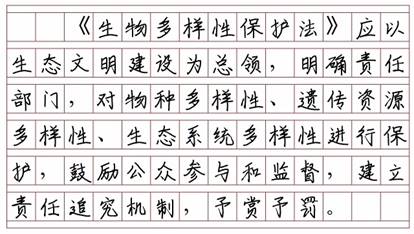 《生物多样性保护法》应以
生态文明建设为总领，明确责任
部门，对物种多样性、遗传资源
多样性、生态系统多样性进行保
护，鼓励公众参与和监督，建立
责任追究机制，予赏予罚。